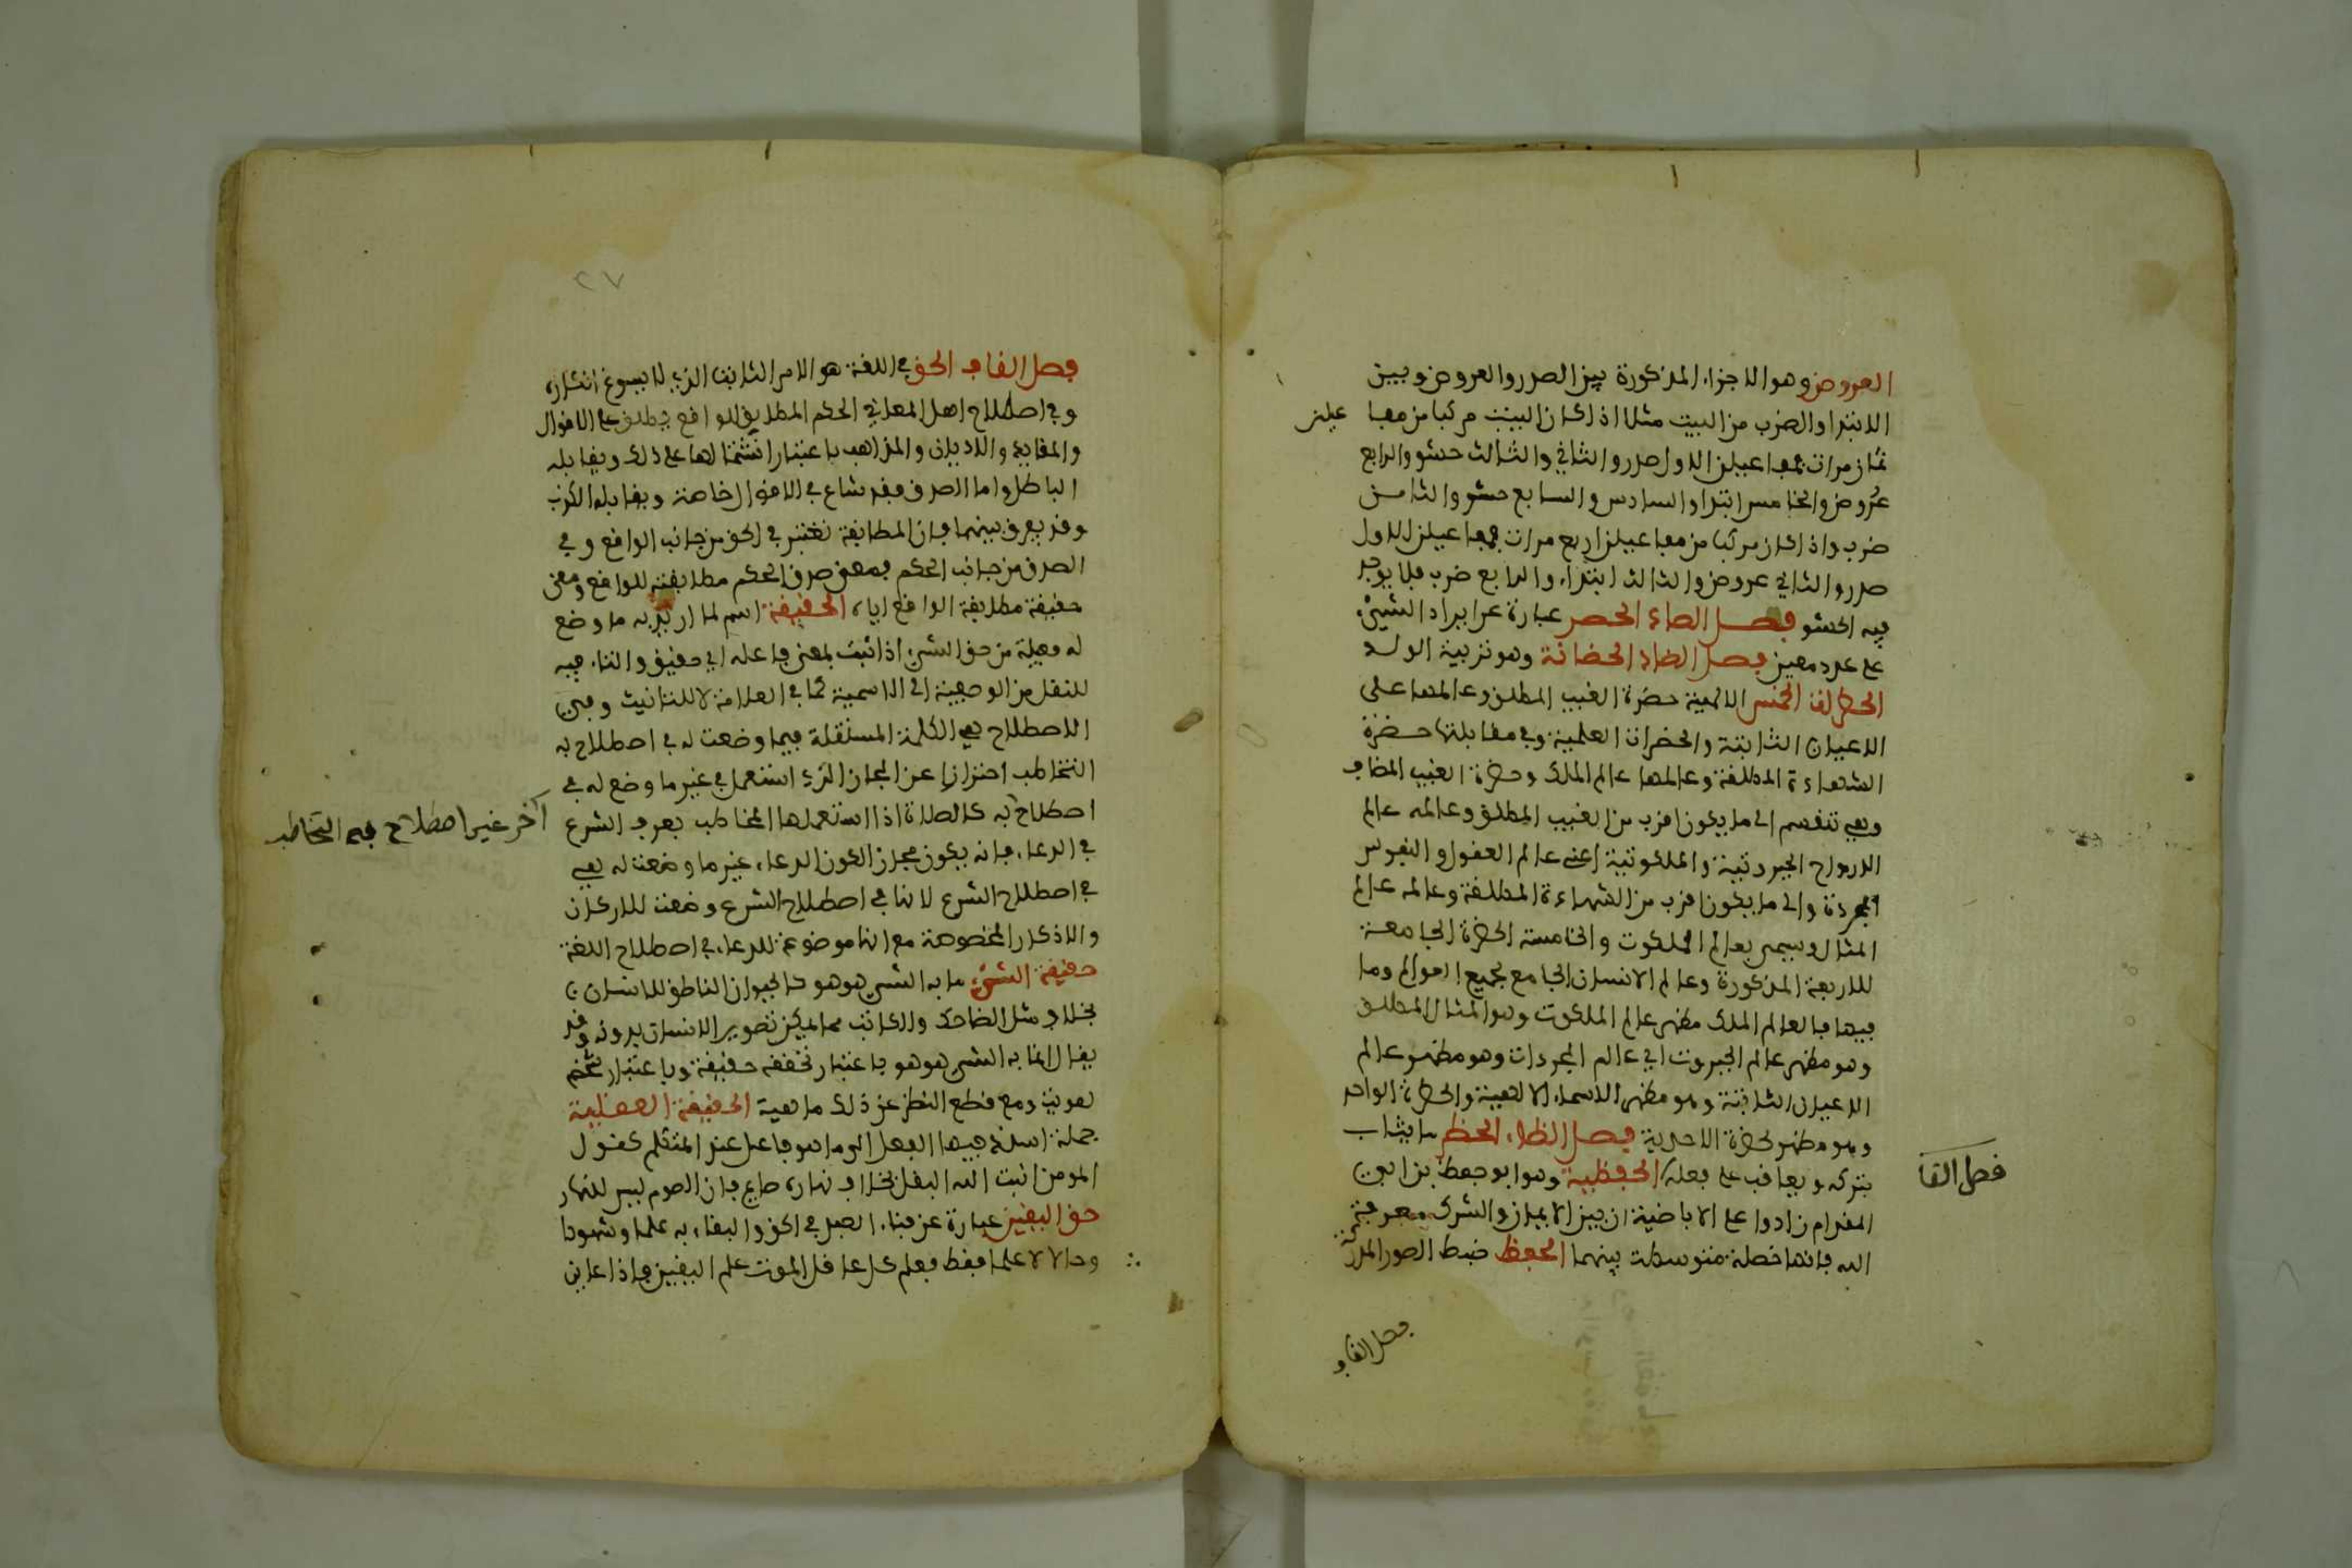 العروض وهو الاجزاء المذكورة بين الصدر والعروض وبين
الابتدا والضرب من البيت مثلا اذا كان البيت مركبا من مفا عيلن
ثمان مرات فمفاعيلن الاول صدر والثاني والثالث حشو والرابع
عروض والخامس ابتدا والسادس والسابع حشو والثامن
ضرب واذا كان مركبا من مفاعيلن اربع مرات فمفاعيلن الاول
صدر والثاني عروض والثالث ابتداء والرابع ضرب فلا يوجد
فيه الحشو فصل الصاد الحصر عبارة عن ايراد الشيء
على عدد معين فصل الضاد الحضانة وهو تربية الولد
الحضرات الخمس الالهية حضرة الغيب المطلق وعالمها على
الاعيان الثابتة والحضرات العلمية وفي مقابلتها حضرة
الشهادة المطلقة وعالمها عالم الملك وحضرة الغيب المضاف
وهي تنقسم الى ما يكون اقرب من الغيب المطلق وعالمه عالم
الارواح الجبروتية والملكوتية اعني عالم العقول والنفوس
المجردة والى ما يكون اقرب من الشهادة المطلقة وعالمه عالم
المثال ويسمى بعالم الملكوت والخامسة الحضرة الجامعة
للاربعة المذكورة وعالم الانسان الجامع لجميع العوالم وما
فيها فالعالم الملك مظهر عالم الملكوت وهو المثال المطلق
وهو مظهر عالم الجبروت اي عالم المجردات وهو مظهر عالم
الاعيان الثابتة وهو مظهر الاسماء الالهية والحضرة الواحد
وهو مظهر لحضرة الاحدية فصل الظاء الحظر ما يثاب
بتركه ويعاقب على فعله الحفظية وهو ابو حفظ بن ابي
المقدام زادوا على الاباضية ان بين الايمان والشرك معرفة
الله فانها خصلة متوسطت بينهما الحفظ ضبط الصور المدركة
فصل القا
فصل القاف
٢٧
فصل القاف الحق في اللغة هو الامر الثابت الذي لا يسوغ انكاره
وفي اصطلاح اهل المعاني الحكم المطابق للواقع يطلق على الاقوال
والعقايد والاديان والمذاهب باعتبار اشتمالها على ذلك ويقابله
الباطل واما الصدق فقد شاع في الاقوال خاصة ويقابله الكذب
وقد يفرق بينهما فان المطابقة تعتبر في الحق من جانب الواقع وفي
الصدق من جانب الحكم فمعنى صدق الحكم مطابقته للواقع ومعنى
حقيقة مطابقة الواقع اياه الحقيقة اسم لما اريد به ما وضع
له فعيلة من حق الشيء اذا ثبت بمعنى فاعله اي حقيق والتاء فيه
للنقل من الوصفية الى الاسمية كما في العلامة لا للتانيث وفي
الاصطلاح هي الكلمة المستقلة فيما وضعت له في اصطلاح به
التخاطب احترازا عن المجاز الذي استعمل في غير ما وضع له في
اصطلاح به كالصلاة اذا استعملها المخاطب بعرف الشرع
آخر غير اصطلاح فيه التخاطب
في الدعاء فانه يكون مجازا لكون الدعاء غير ما وضعت له هي
في اصطلاح الشرع لانها في اصطلاح الشرع وضعت للاركان
والاذكار المخصوصة مع انها موضوعة للدعاء في اصطلاح اللغة
حقيقة الشيء ما به الشيء هو هو كالحيوان الناطق للانسان
بخلاف مثل الضاحك والكاتب مما يمكن تصوير الانسان بدونه وقد
يقال انما به الشيء هو هو باعتبار تحققه حقيقة وباعتبار تشخصه
هوية ومع قطع النظر عن ذلك ماهية الحقيقة العقلية
جملة اسند فيها الفعل الى ما هو فاعل عند المتكلم كقول
المومن انبت الله البقل بخلاف نهاره صايم فان الصوم ليس للنهار
حق اليقين عبارة عن فناء العبد في الحق والبقاء به علما وشهودا
وحالا لا علما فقط فعلم كل عاقل الموت علم اليقين فاذا عاين